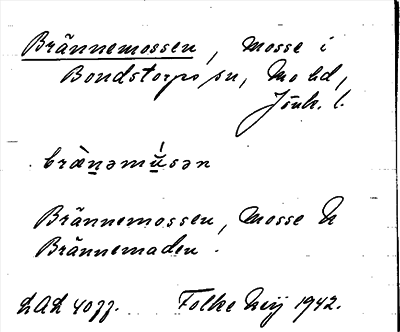 Brännemossen, mosse i
Bondstorps sn, Mo hd,
Jönk. l.
brä̀nəmùsən
Brännemossen, mosse N
Brännemaden.
LAL 4077. Folke Neij 1942.